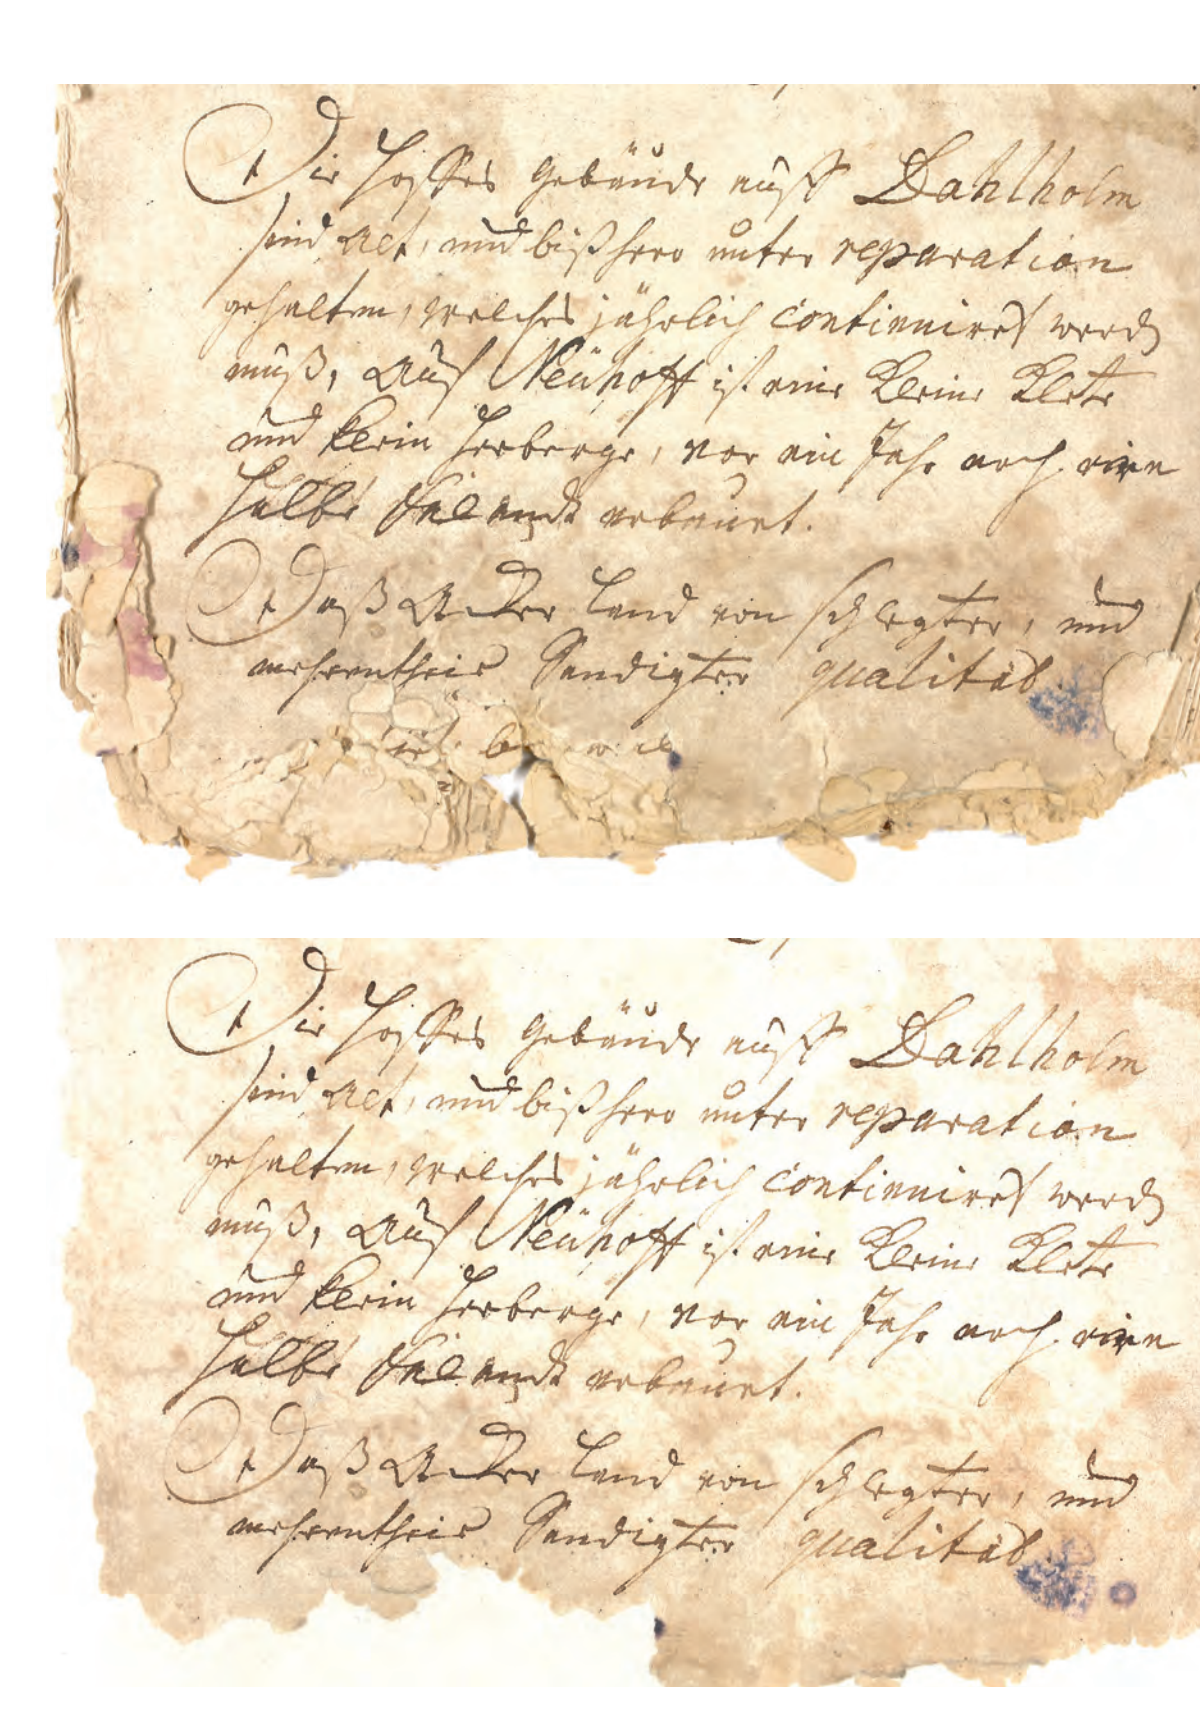 Die Hoffes Gebäude auff Dahlholm
sind alt, und bißhero unter reparation
gehalten, welches jährlich continuiret werd
muß, Auf Neühoff ist eine Kleine Klete
und klein Herberge, vor ein Jahr nach eine
halbe erbauet.
Daß Acker Land von schlegter, und
mehrentheils Sandigter qualität
Die Hoffes Gebäude auff Dahlholm
sind alt, und bißhero unter reparation
gehalten, welches jährlich continuiret werd
muß, Auf Neühoff ist eine Kleine Klete
und klein Herberge, vor ein Jahr nach eine
halbe erbauet.
Daß Acker Land von schlegter, und
mehrentheils Sandigter qualität